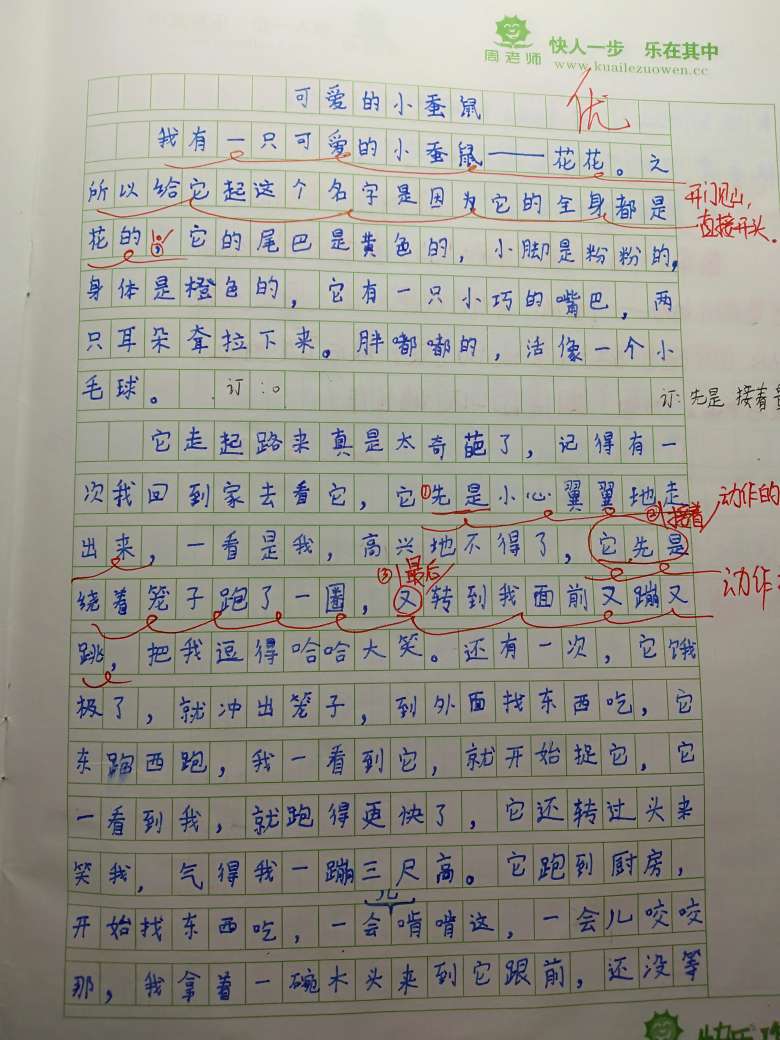 周老师 快人一步 乐在其中
www.kuailezuowen.cc
可爱的小蚕鼠 优
我有一只可爱的小蚕鼠——花花。之
所以给它起这个名字是因为它的全身都是
开门见山,
直接开头。
花的。它的尾巴是黄色的,小脚是粉粉的,
身体是橙色的,它有一只小巧的嘴巴,两
只耳朵耷拉下来。胖嘟嘟的,活像一个小
毛球。 订:。
订:先是 接着
它走起路来真是太奇葩了,记得有一
次我回到家去看它,它①先是小心翼翼地走
动作的
②接着
出来,一看是我,高兴地不得了,它先是
③最后
动作
绕着笼子跑了一圈,又转到我面前又蹦又
跳,把我逗得哈哈大笑。还有一次,它饿
极了,就冲出笼子,到外面找东西吃,它
东跑西跑,我一看到它,就开始捉它,它
一看到我,就跑得更快了,它还转过头来
笑我,气得我一蹦三尺高。它跑到厨房,
儿
开始找东西吃,一会啃啃这,一会儿咬咬
那,我拿着一碗木头来到它跟前,还没等